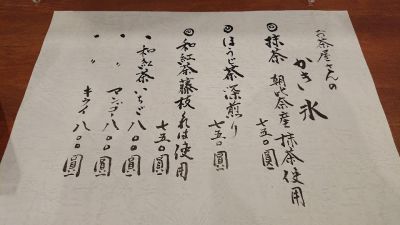 お茶屋さんの
かき氷
◎抹茶 朝比奈産抹茶使用
七五〇圓
◎ほうじ茶深煎り
七五〇圓
◎和紅茶藤枝れは使用
七五〇圓
・和紅茶いちご八〇〇圓
〃 マンゴー八〇〇圓
〃 キウイ八〇〇圓